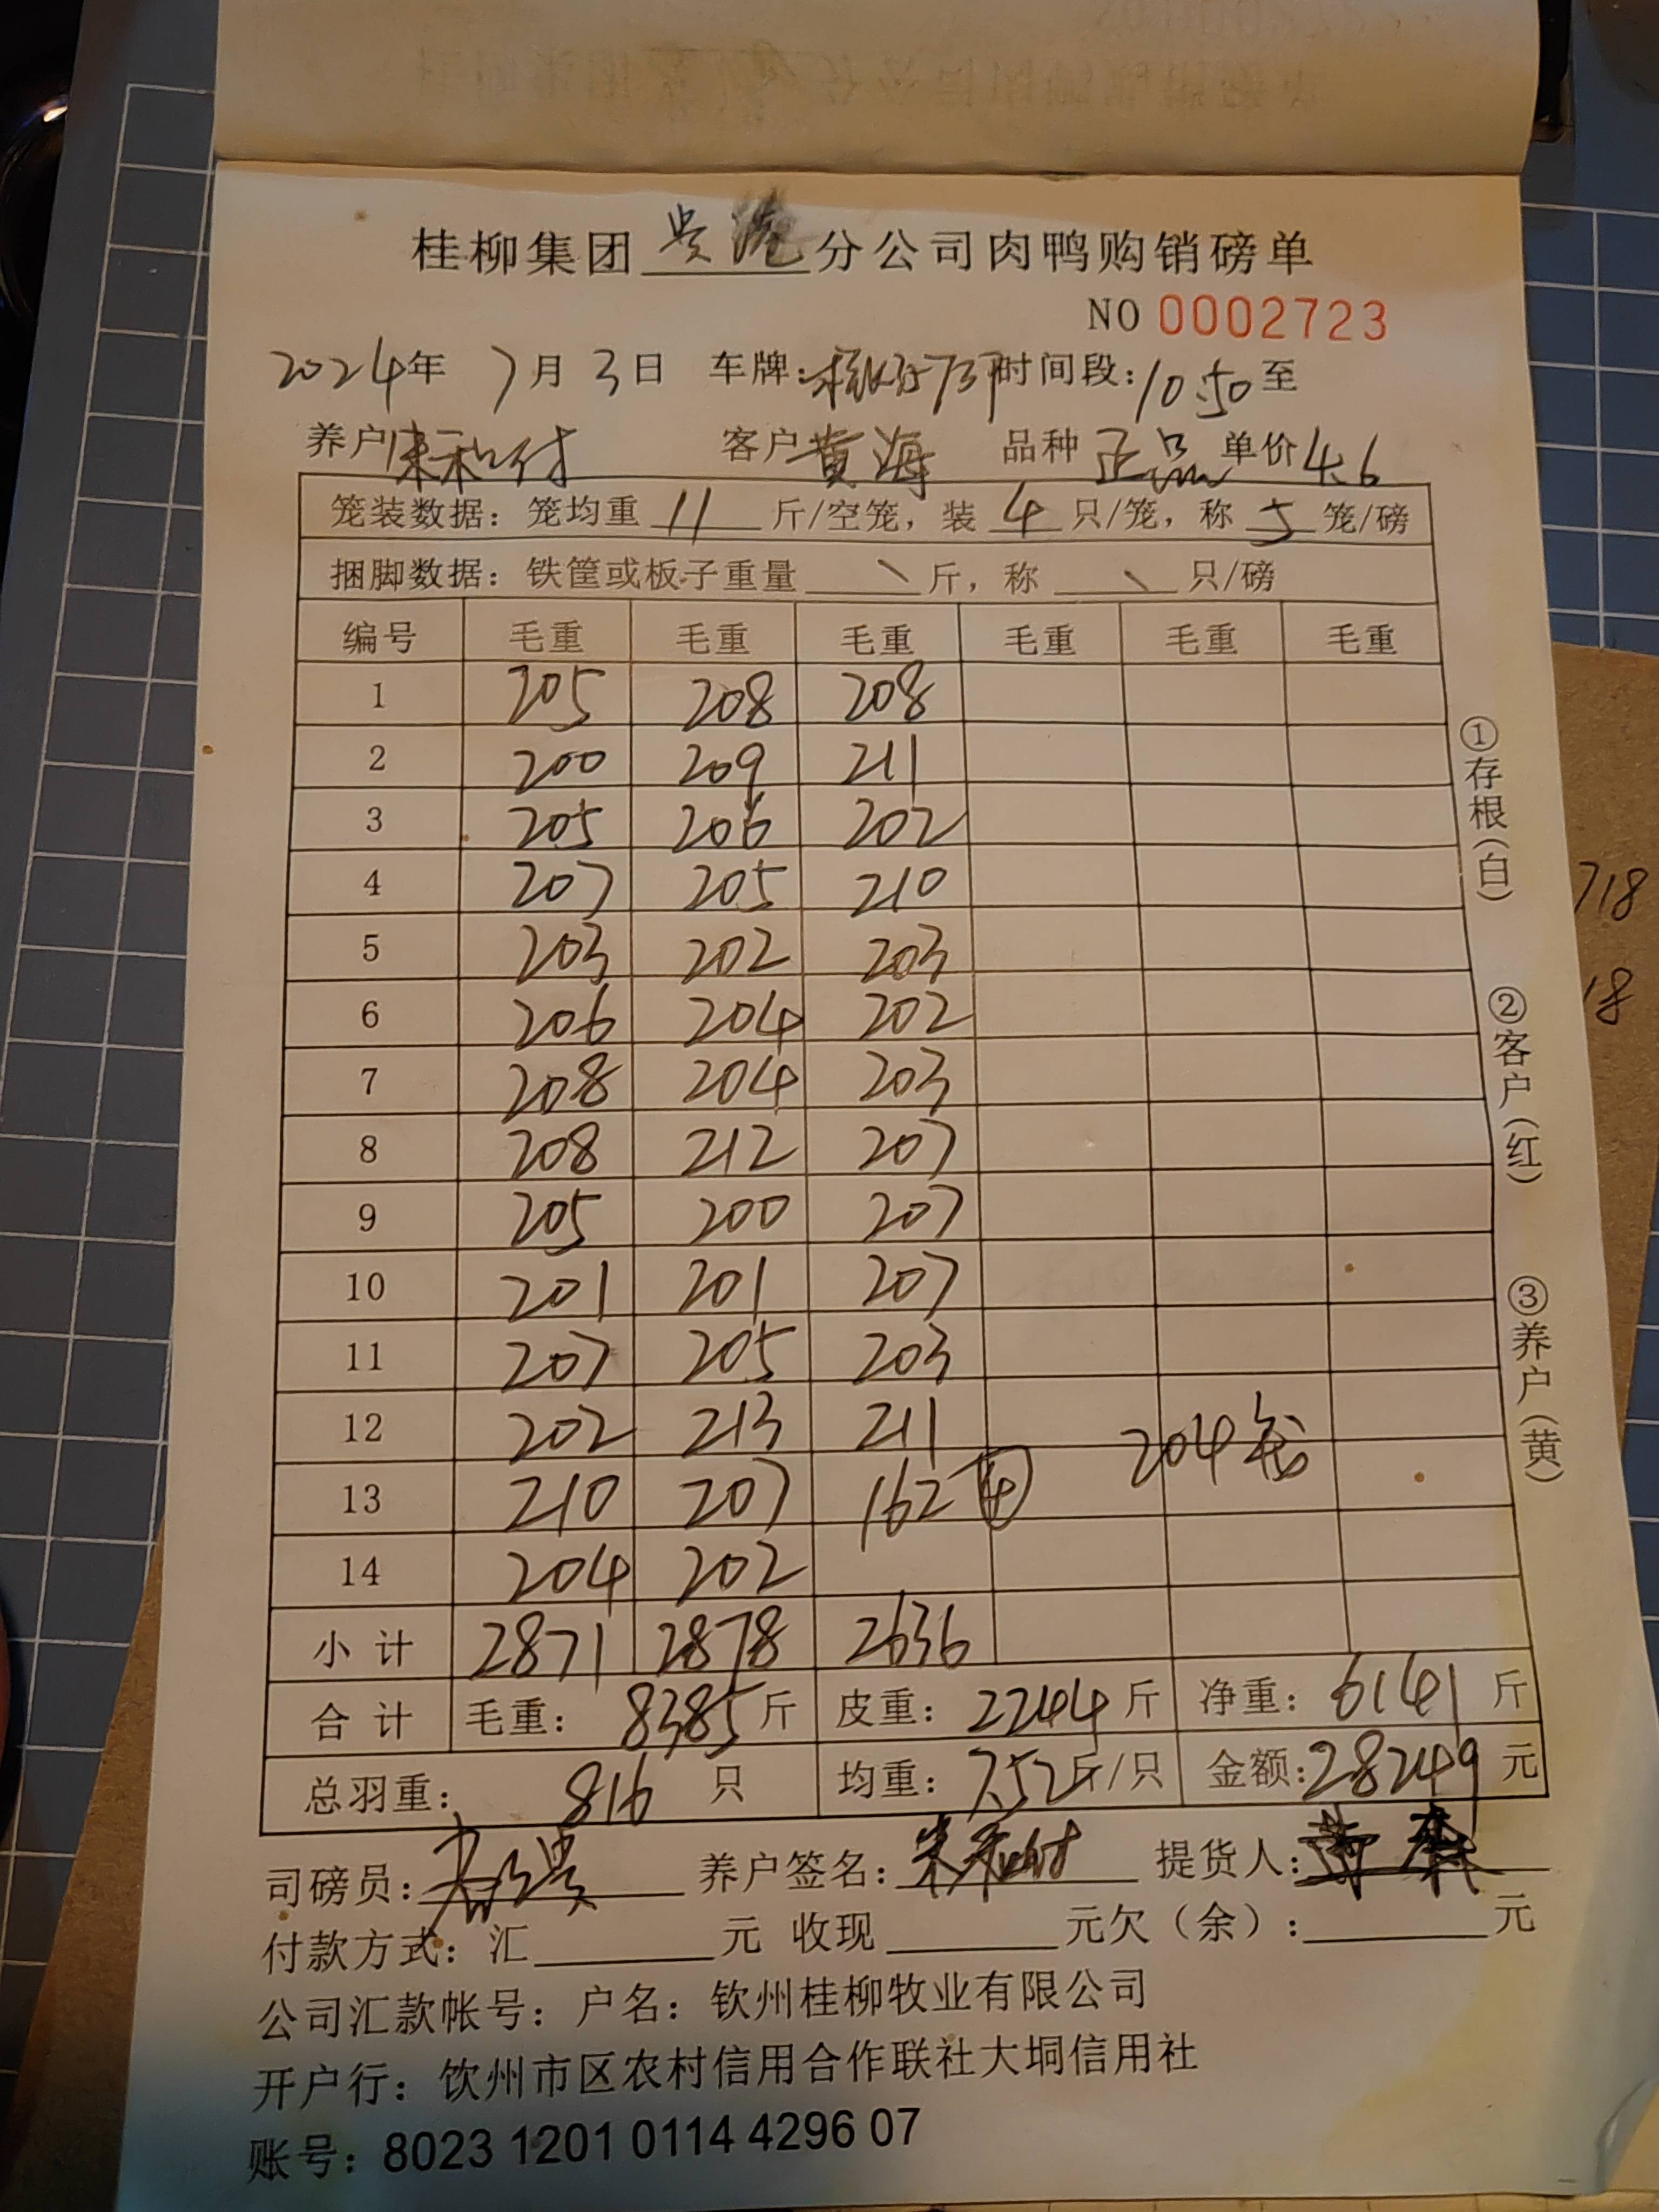 桂柳集团 分公司肉鸭购销磅单
NO 0002723
2024年 7月 3日 车牌: 时间段:10:50至
养户 朱和付 客户 黄海 品种 正品 单价 4.6
笼装数据：笼均重 11 斤/空笼，装 4 只/笼，称 5 笼/磅
捆脚数据：铁筐或板子重量 \ 斤，称 \ 只/磅
编号 毛重 毛重 毛重 毛重 毛重 毛重
1 205 208 208
2 200 209 211
3 205 206 202
4 207 205 210
5 203 202 203
6 206 204 202
7 208 204 203
8 208 212 207
9 205 200 207
10 201 201 207
11 207 205 203
12 202 213 211
13 210 207 162 ④ 204笼
14 204 202
小计 2871 2878 2636
合计 毛重：8385斤 皮重：2244斤 净重：6141斤
总羽重：816 只 均重：7.52斤/只 金额:28249元
司磅员： 养户签名：朱和付 提货人：
付款方式：汇 元 收现 元欠（余）： 元
公司汇款帐号：户名：钦州桂柳牧业有限公司
开户行：钦州市区农村信用合作联社大垌信用社
账号：8023 1201 0114 4296 07
①存根（白）
②客户（红）
③养户（黄）
718
18